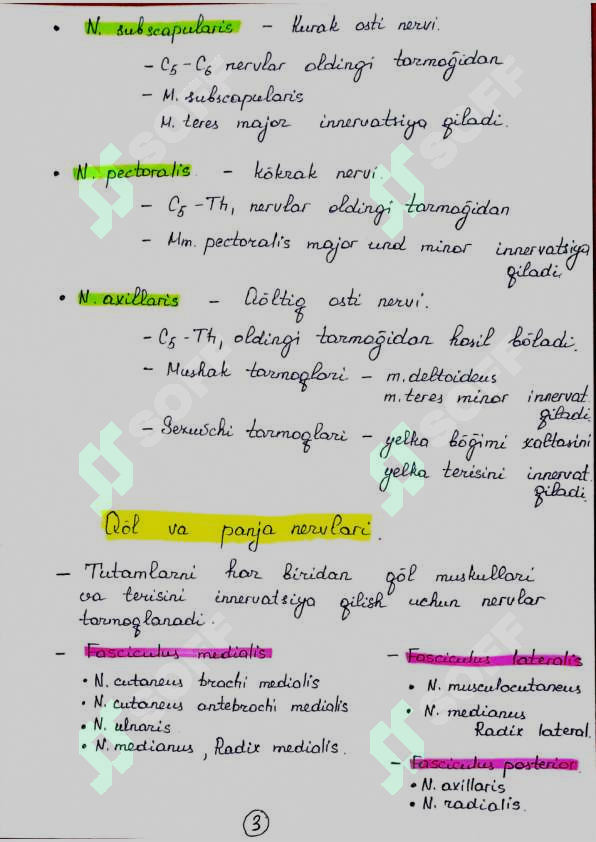 • N. subscapularis – Kurak osti nervi.
– C5–C6 nervlar oldingi tarmoğidan
– M. subscapularis
M. teres major innervatsiya qiladi.
• N. pectoralis – kökrak nervi.
– C5–Th1 nervlar oldingi tarmoğidan
– Mm. pectoralis major und minor innervatsiya
qiladi.
• N. axillaris – Qöltiq osti nervi.
– C5–Th1 oldingi tarmoğidan hosil böladi.
– Mushak tarmoqlari – m. deltoideus
m. teres minor innervat.
qiladi.
– Sezuvchi tarmoqlari – yelka böğimi xaltasini
yelka terisini innervat.
qiladi.
Qöl va panja nervlari.
– Tutamlarni har biridan qöl muskullari
va terisini innervatsiya qilish uchun nervlar
tarmoqlanadi.
– Fasciculus medialis
• N. cutaneus brachi medialis
• N. cutaneus antebrachi medialis
• N. ulnaris
• N. medianus, Radix medialis.
– Fasciculus lateralis
• N. musculocutaneus
• N. medianus
Radix lateral.
– Fasciculus posterior
• N. axillaris
• N. radialis.
3
SOFF
SOFF
SOFF
SOFF
SOFF
SOFF